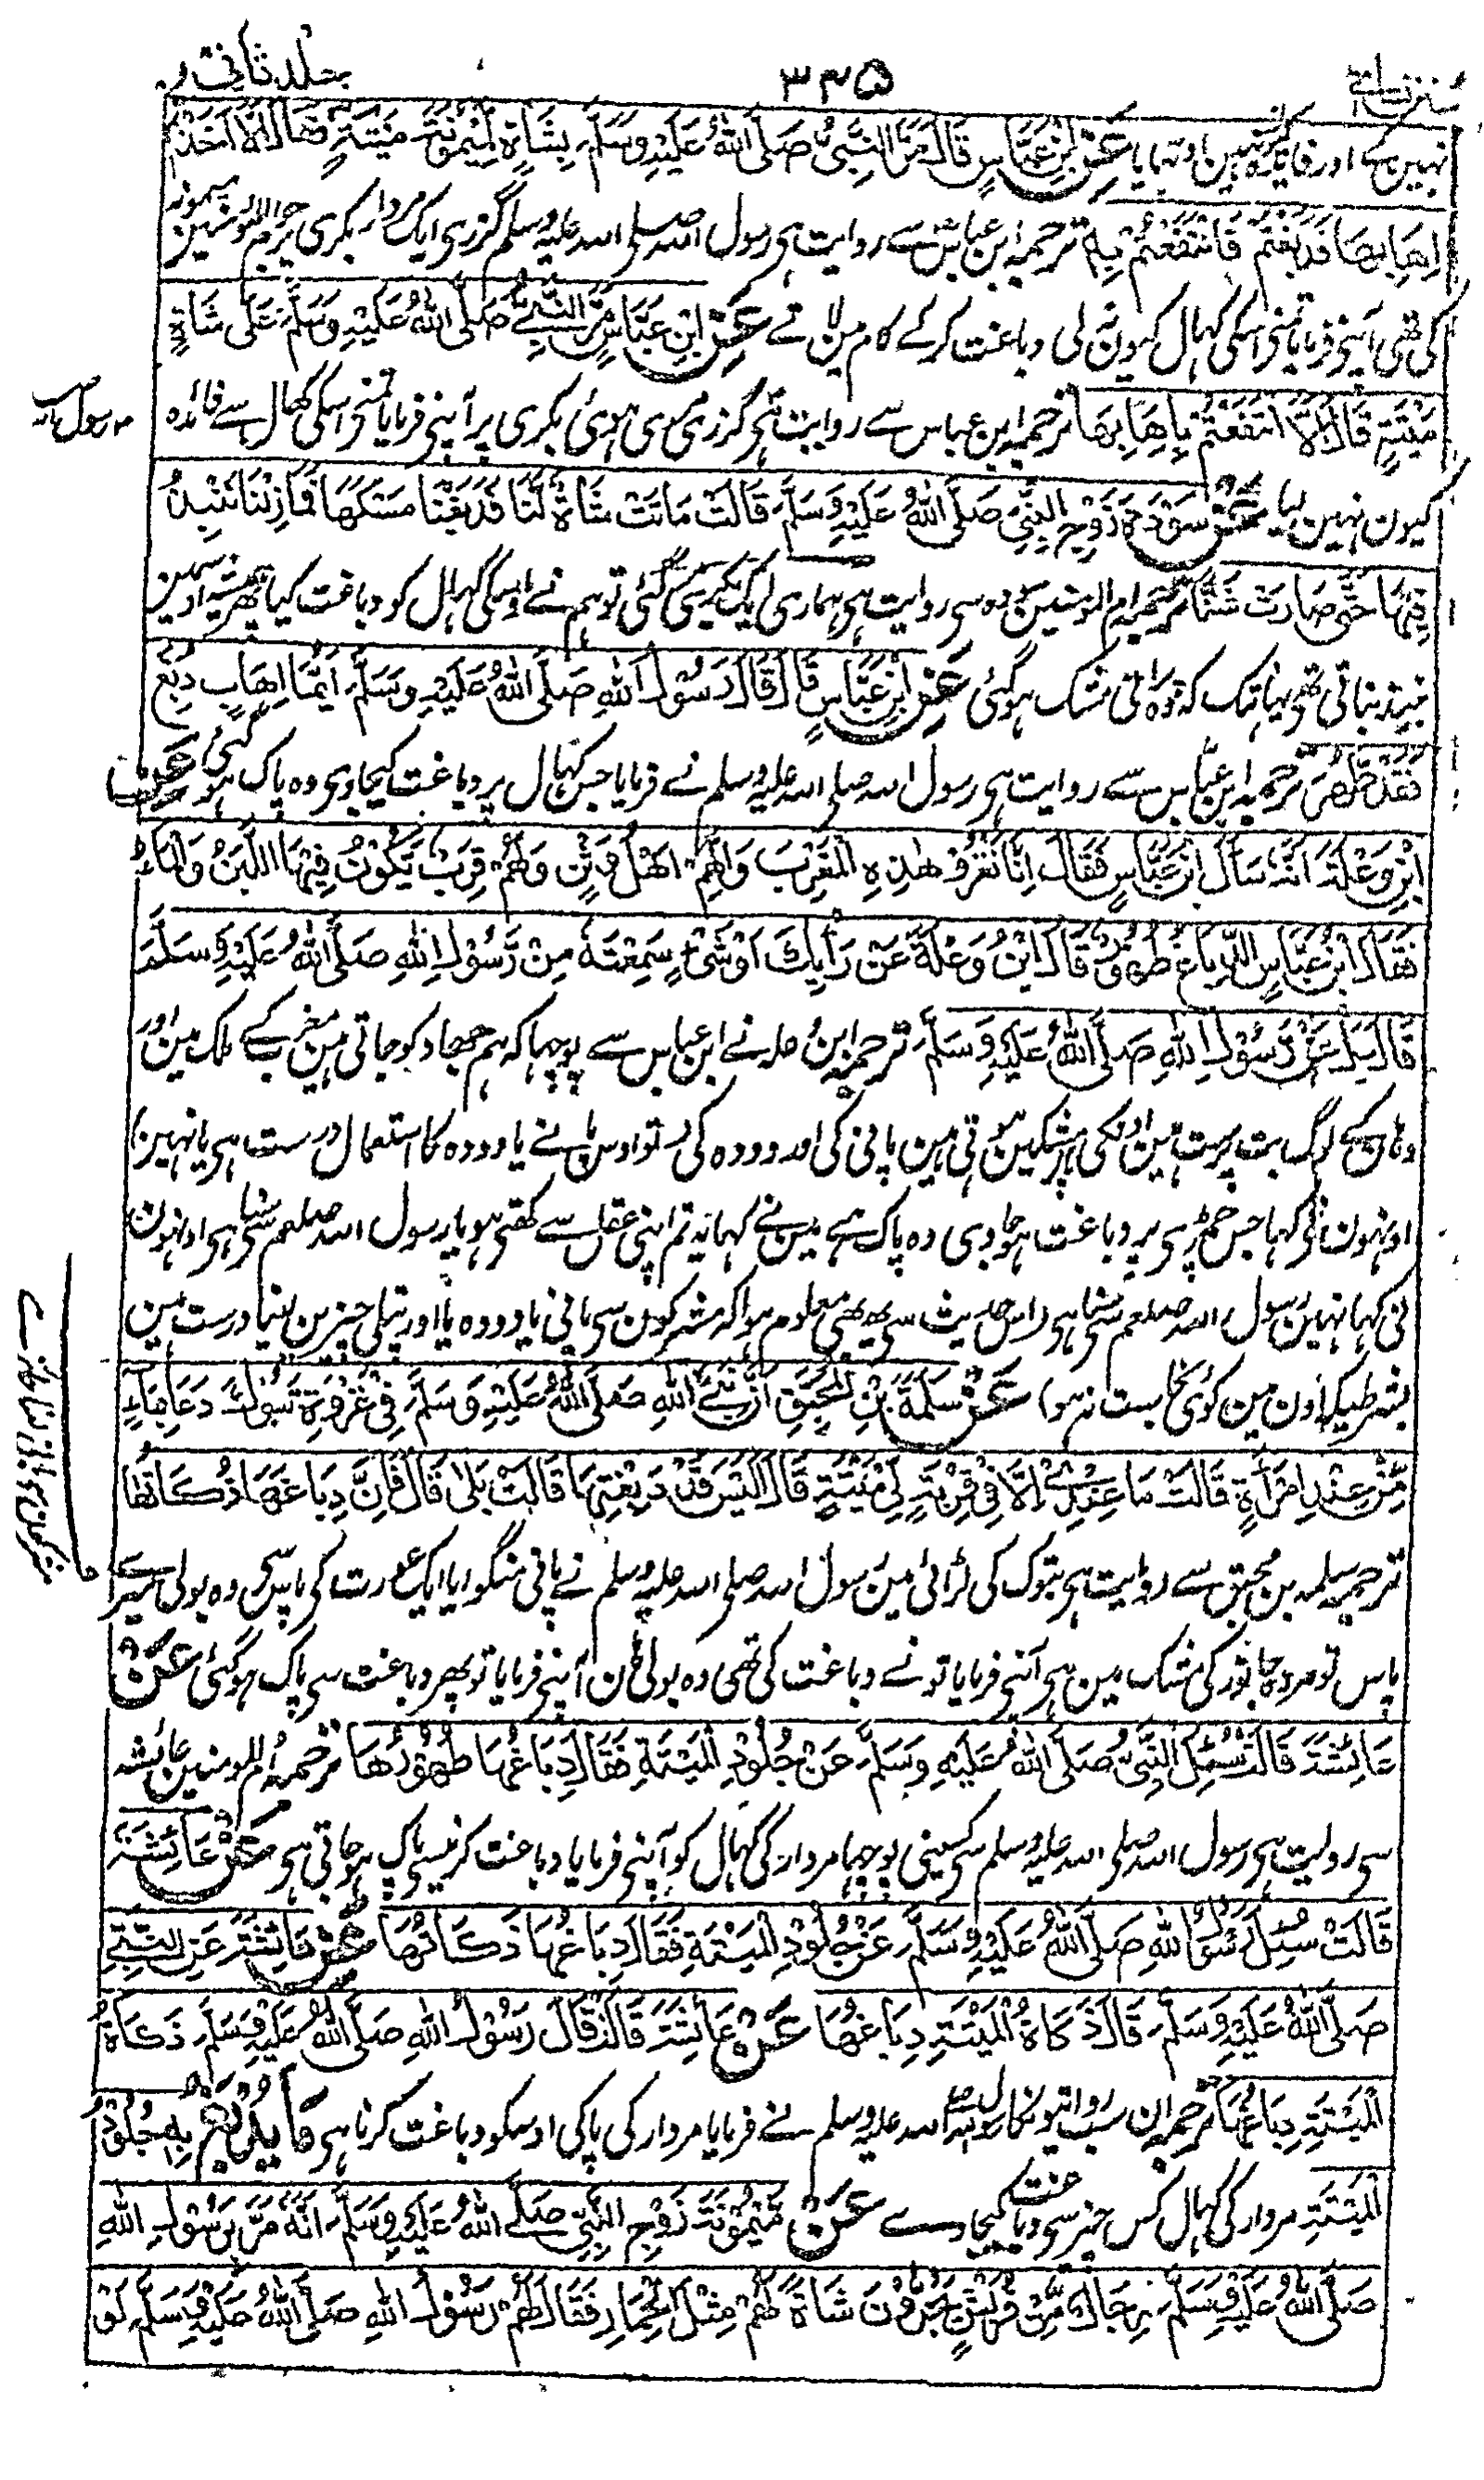 جلد ثانی
۳۴۵
نہین ہے اور فائدہ نہین اوٹھایا عَنِ ابْنِ عَبَّاسٍ قَالَ مَرَّ النَّبِیُّ صَلَّی اللہُ عَلَیْہِ وَسَلَّمَ بِشَاۃٍ لِمَیْمُوْنَۃَ مَیْتَۃٍ فَقَالَ اَلَّا اَخَذْتُمْ
اِھَابَھَا فَدَبَغْتُمْ فَانْتَفَعْتُمْ بِہٖ ترجمہ ابن عباس سے روایت ہی رسول اللہ صلی اللہ علیہ وسلم گزری ایک مردار بکری پر جو ام المومنین میمونہ
کی تھی آپنے فرمایا تمنی اسکی کہال کیون نہ لی دباغت کرکے کام مین لاتے عَنِ ابْنِ عَبَّاسٍ مَرَّ النَّبِیُّ صَلَّی اللہُ عَلَیْہِ وَسَلَّمَ عَلٰی شَاۃٍ
مَیْتَۃٍ قَالَ اَلَّا انْتَفَعْتُمْ بِاِھَابِھَا ترجمہ ابن عباس سے روایت ہی گزری مری ہوئی بکری پر آپنے فرمایا تمنی اسکی کھال سے فائدہ
کیون نہین لیا عَنْ سَوْدَۃَ زَوْجِ النَّبِیِّ صَلَّی اللہُ عَلَیْہِ وَسَلَّمَ قَالَتْ مَاتَتْ شَاۃٌ لَنَا فَدَبَغْنَا مَسْکَھَا فَمَا زِلْنَا نَنْبِذُ
فِیْہَا حَتّٰی صَارَتْ شَنًّا ترجمہ ام المومنین سودہ سی روایت ہی ہماری ایک بکری مر گئی تو ہم نے اوسکی کہال کو دباغت کیا پھر ہمیشہ اوسمین
نبیذ بناتی تھی یہانتک کہ وہ پرانی مشک ہوگئی عَنِ ابْنِ عَبَّاسٍ قَالَ قَالَ رَسُوْلُ اللہِ صَلَّی اللہُ عَلَیْہِ وَسَلَّمَ اَیُّمَا اِھَابٍ دُبِغَ
فَقَدْ طَھُرَ ترجمہ ابن عباس سے روایت ہی رسول اللہ صلی اللہ علیہ وسلم نے فرمایا جس کہال پر دباغت کیجاوی وہ پاک ہوگئی عَنِ
ابْنِ وَعْلَۃَ اَنَّہٗ سَأَلَ ابْنَ عَبَّاسٍ فَقَالَ اِنَّا نَغْزُوْ ھٰذِہِ الْمَغْرِبَ وَاِنَّھُمْ اَھْلُ وَثَنٍ وَلَھُمْ قِرَبٌ یَّکُوْنُ فِیْہَا اللَّبَنُ وَالْمَاءُ
فَقَالَ ابْنُ عَبَّاسٍ الدِّبَاغُ طَھُوْرٌ قَالَ ابْنُ وَعْلَۃَ عَنْ رَأْیِکَ اَوْ شَیْءٍ سَمِعْتَہٗ مِنْ رَّسُوْلِ اللہِ صَلَّی اللہُ عَلَیْہِ وَسَلَّمَ
قَالَ بَلْ عَنْ رَسُوْلِ اللہِ صَلَّی اللہُ عَلَیْہِ وَسَلَّمَ ترجمہ ابن وعلہ نے ابن عباس سے پوچہا کہ ہم جہاد کو جاتی ہین مغرب کے ملک مین اور
وہان کے لوگ بت پرست ہین اونکی پاس مشکین ہوتی ہین پانی کی اور دودہ کی تو اوس پانی یا دودہ کا استعمال درست ہی یا نہین)
اونہون نے کہا جس چمڑی پر دباغت ہوجاوی وہ پاک ہے مین نے کہا یہ تم اپنی عقل سے کہتی ہو یا رسول اللہ صلعم سی سنا ہی اونہون
نی کہا نہین رسول اللہ صلعم سی سنا ہی (اس حدیث سی یہ بھی معلوم ہوا کہ مشرکون سی پانی یا دودہ یا اور پتلی چیزین لینا درست ہین
بشرطیکہ اون مین کوئی نجاست نہ ہو) عَنْ سَلَمَۃَ بْنِ الْمُحَبِّقِ اَنَّ نَبِیَّ اللہِ صَلَّی اللہُ عَلَیْہِ وَسَلَّمَ فِیْ غَزْوَۃِ تَبُوْکَ دَعَا بِمَاءٍ
مِّنْ عِنْدِ امْرَأَۃٍ قَالَتْ مَا عِنْدِیْ اِلَّا فِیْ قِرْبَۃٍ لِّیْ مَیْتَۃٍ قَالَ اَلَیْسَ قَدْ دَبَغْتِہَا قَالَتْ بَلٰی قَالَ فَاِنَّ دِبَاغَھَا ذَکَاتُھَا
ترجمہ سلمہ بن محبق سے روایت ہی تبوک کی لڑائی مین رسول اللہ صلی اللہ علیہ وسلم نے پانی منگوایا ایک عورت کی پاس سی وہ بولی میرے
پاس تو مردہ جانور کی مشک مین ہی آپنے فرمایا تو نے دباغت کی تھی وہ بولی ہان آپنے فرمایا تو پھر دباغت سی پاک ہوگئی عَنْ
عَائِشَۃَ قَالَتْ سُئِلَ النَّبِیُّ صَلَّی اللہُ عَلَیْہِ وَسَلَّمَ عَنْ جُلُوْدِ الْمَیْتَۃِ فَقَالَ دِبَاغُہَا طُھُوْرُھَا ترجمہ ام المومنین عائشہ
سی روایت ہی رسول اللہ صلی اللہ علیہ وسلم سی کسینی پوچہا مردار کی کہال کو آپنے فرمایا دباغت کرنیسی پاک ہوجاتی ہی عَنْ عَائِشَۃَ
قَالَتْ سُئِلَ رَسُوْلُ اللہِ صَلَّی اللہُ عَلَیْہِ وَسَلَّمَ عَنْ جُلُوْدِ الْمَیْتَۃِ فَقَالَ دِبَاغُہَا ذَکَاتُھَا عَنْ عَائِشَۃَ عَنِ النَّبِیِّ
صَلَّی اللہُ عَلَیْہِ وَسَلَّمَ قَالَ ذَکَاۃُ الْمَیْتَۃِ دِبَاغُھَا عَنْ عَائِشَۃَ قَالَتْ قَالَ رَسُوْلُ اللہِ صَلَّی اللہُ عَلَیْہِ وَسَلَّمَ ذَکَاۃُ
الْمَیْتَۃِ دِبَاغُہَا ترجمہ ان سب روایتون کا رسول اللہ صلی اللہ علیہ وسلم نے فرمایا مردار کی پاکی اوسکو دباغت کرنا ہی مَا یُدْبَغُ بِہٖ جُلُوْدُ
الْمَیْتَۃِ مردار کی کہال کس چیز سی دباغت کیجاوے عَنْ مَیْمُوْنَۃَ زَوْجِ النَّبِیِّ صَلَّی اللہُ عَلَیْہِ وَسَلَّمَ اَنَّہٗ مَرَّ بِرَسُوْلِ اللہِ
صَلَّی اللہُ عَلَیْہِ وَسَلَّمَ رِجَالٌ مِّنْ قُرَیْشٍ یَجُرُّوْنَ شَاۃً لَّھُمْ مِثْلَ الْحِمَارِ فَقَالَ لَھُمْ رَسُوْلُ اللہِ صَلَّی اللہُ عَلَیْہِ وَسَلَّمَ لَوْ